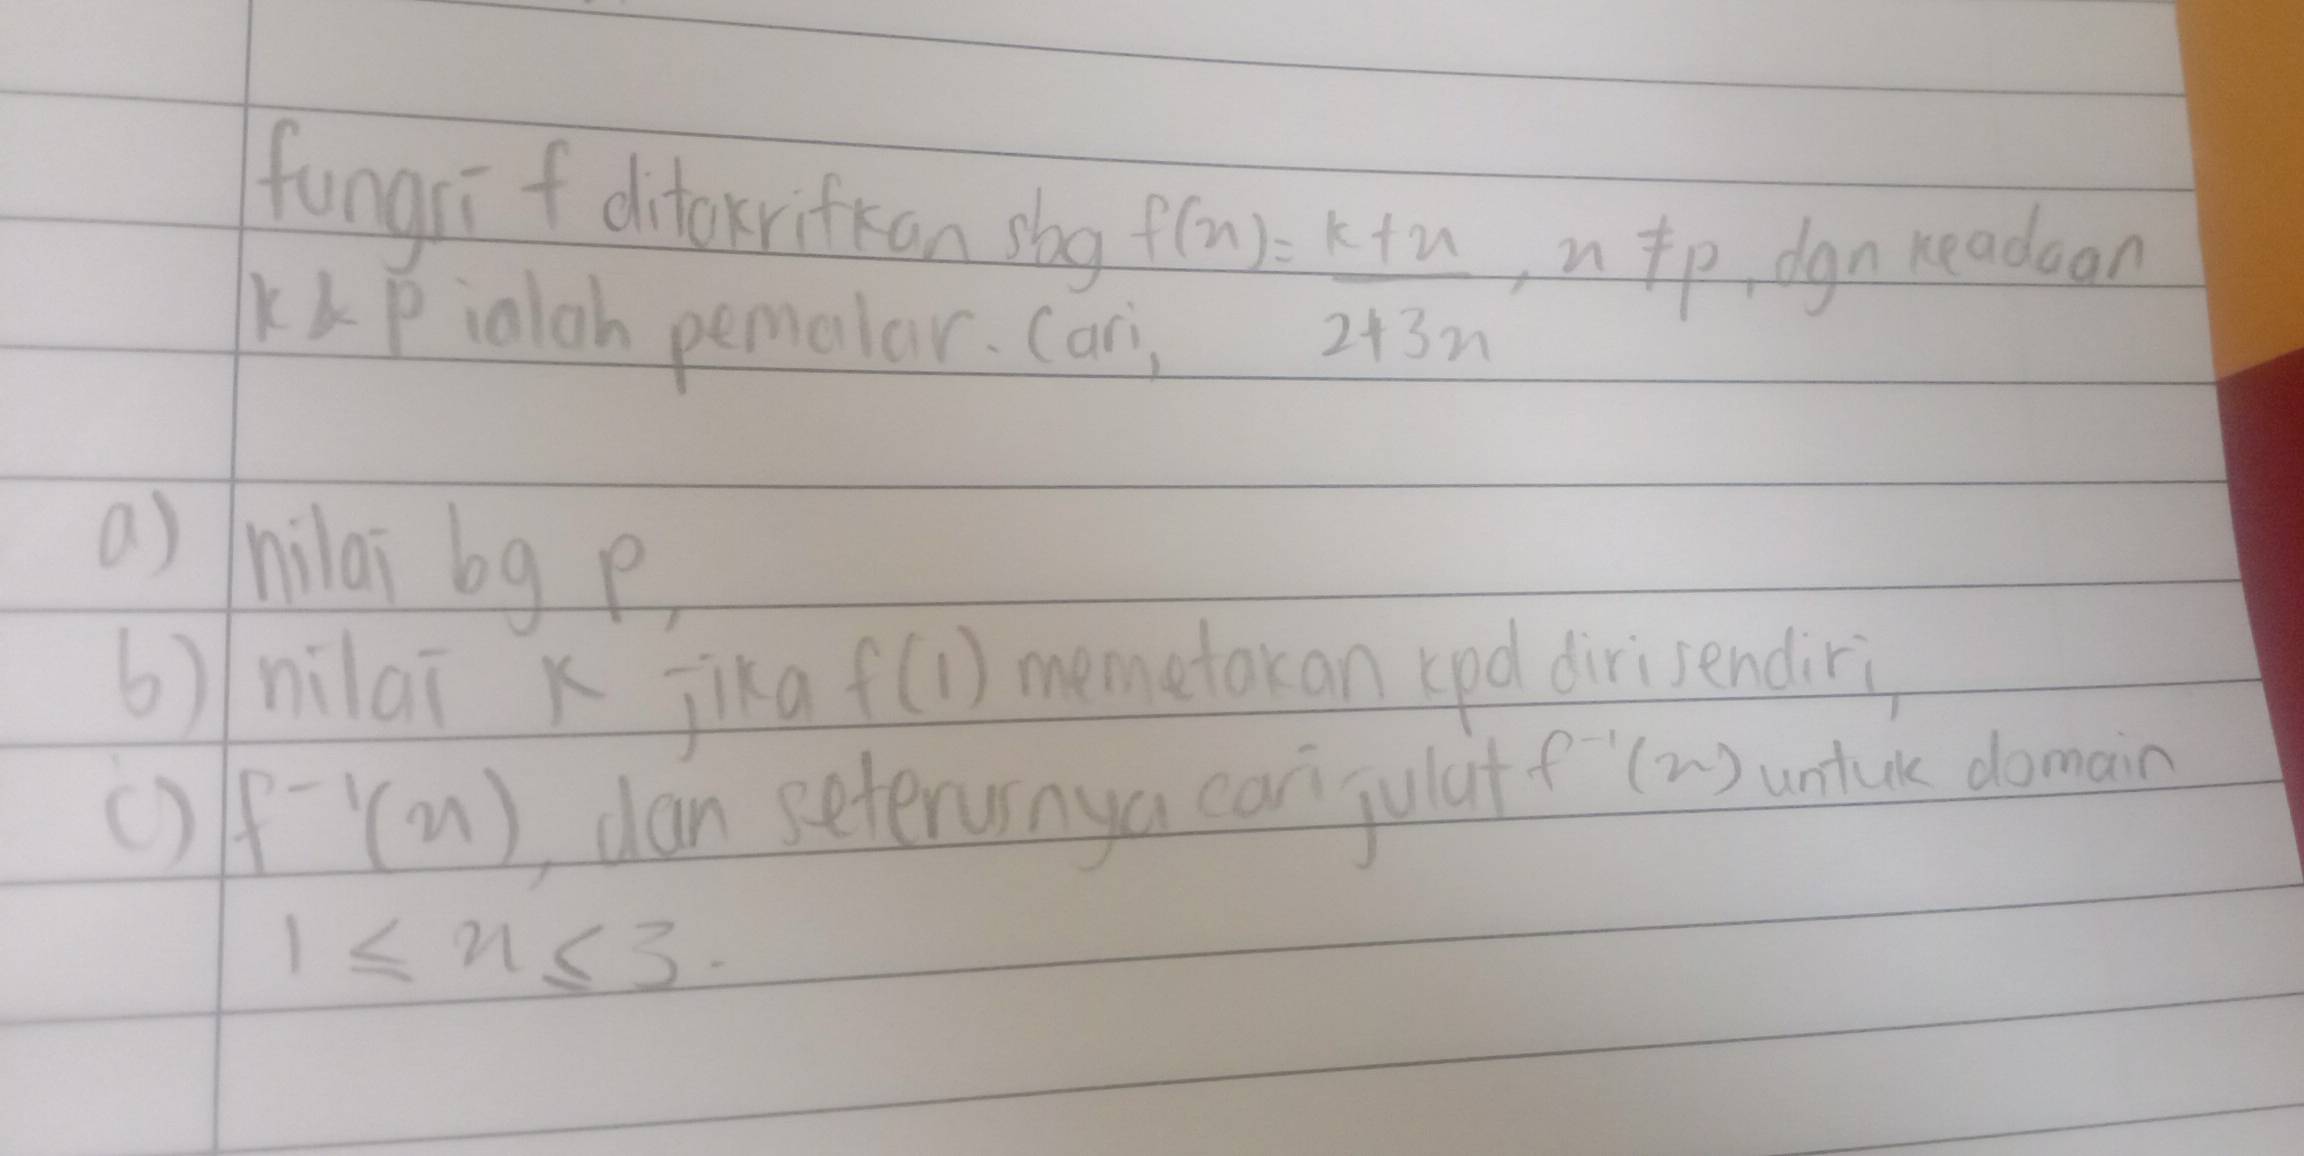 fungsi f ditakrifkan sbg f(x) = k + x / 2 + 3x, x ≠ p, dgn keadaan
k & p ialah pemalar. Cari,
a) nilai bg p,
b) nilai k jika f(1) memetakan kpd diri sendiri,
c) f⁻¹(x), dan seterusnya cari julat f⁻¹(x) untuk domain
1 ≤ x ≤ 3.